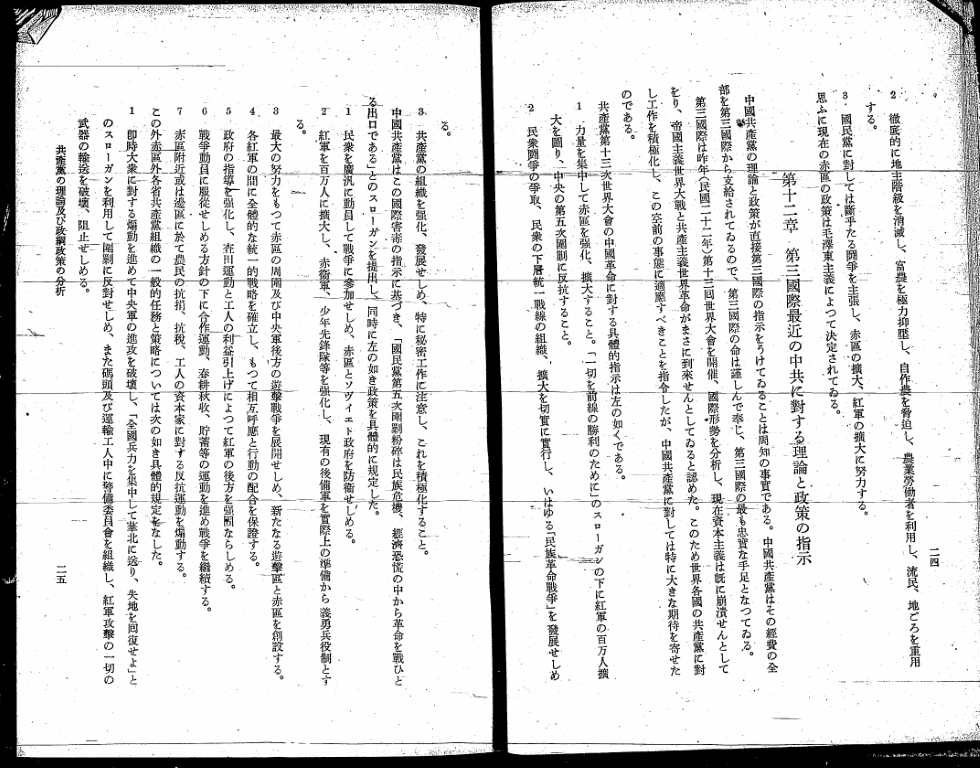 二四
2　徹底的に地主階級を消滅し、富農を極力抑壓し、自作農を脅迫し、農業勞働者を利用し、流民、地ごろを重用
する。
3　國民黨に對しては斷乎たる鬪爭を主張し、赤區の擴大、紅軍の擴大に努力する。
思ふに現在の赤區の政策は毛澤東主義によつて決定されてゐる。
第十二章　第三國際最近の中共に對する理論と政策の指示
中國共產黨の理論と政策が直接第三國際の指示をうけてゐることは周知の事實である。中國共產黨はその經費の全
部を第三國際から支給されてゐるので、第三國際の命は謹しんで奉じ、第三國際の最も忠實な手足となつてゐる。
第三國際は昨年（民國二十二年）第十三囘世界大會を開催、國際形勢を分析し、現在資本主義は旣に崩潰せんとして
をり、帝國主義世界大戰と共產主義世界革命がまさに到來せんとしてゐると認めた。このため世界各國の共產黨に對
し工作を積極化し、この空前の事態に適應すべきことを指令したが、中國共產黨に對しては特に大きな期待を寄せた
のである。
共產黨第十三次世界大會の中國革命に對する具體的指示は左の如くである。
1　力量を集中して赤區を强化、擴大すること。「一切を前線の勝利のために」のスローガンの下に紅軍の百万人擴
大を圖り、中央の第五次圍剿に反抗すること。
2　民衆鬪爭の爭取、民衆の下層統一戰線の組織、擴大を切實に實行し、いはゆる「民族革命戰爭」を發展せしめ
る。
3　共產黨の組織を强化、發展せしめ、特に秘密工作に注意し、これを積極化すること。
中國共產黨はこの國際害毒の指示に基づき、「國民黨第五次圍剿粉碎は民族危機、經濟恐慌の中から革命を戰ひと
る出口である」とのスローガンを提出し、同時に左の如き政策を具體的に規定した。
1　民衆を廣汎に動員して戰爭に參加せしめ、赤區とソヴイエト政府を防衞せしめる。
2　紅軍を百万人に擴大し、赤衞軍、少年先鋒隊等を强化し、現有の後備軍を實際上の準備から義勇兵役制とす
る。
3　最大の努力をもつて赤區の周圍及び中央軍後方の遊擊戰爭を展開せしめ、新たなる遊擊區と赤區を創設する。
4　各紅軍の間に全體的な統一的戰略を確立し、もつて相互呼應と行動の配合を保證する。
5　政府の指導を强化し、査田運動と工人の利益引上げによつて紅軍の後方を强固ならしめる。
6　戰爭動員に服從せしめる方針の下に合作運動、春耕秋收、貯蓄等の運動を進め戰爭を繼續する。
7　赤區附近或は邊區に於て農民の抗捐、抗稅、工人の資本家に對する反抗運動を煽動する。
この外赤區外各省共產黨組織の一般的任務と策略については次の如き具體的規定をなした。
1　卽時大衆に對する煽動を進めて中央軍の進攻を破壞し、「全國兵力を集中して華北に送り、失地を囘復せよ」と
のスローガンを利用して圍剿に反對せしめ、また碼頭及び運輸工人中に警備委員會を組織し、紅軍攻擊の一切の
武器の輸送を破壞、阻止せしめる。
共產黨の理論及び政綱政策の分析
二五